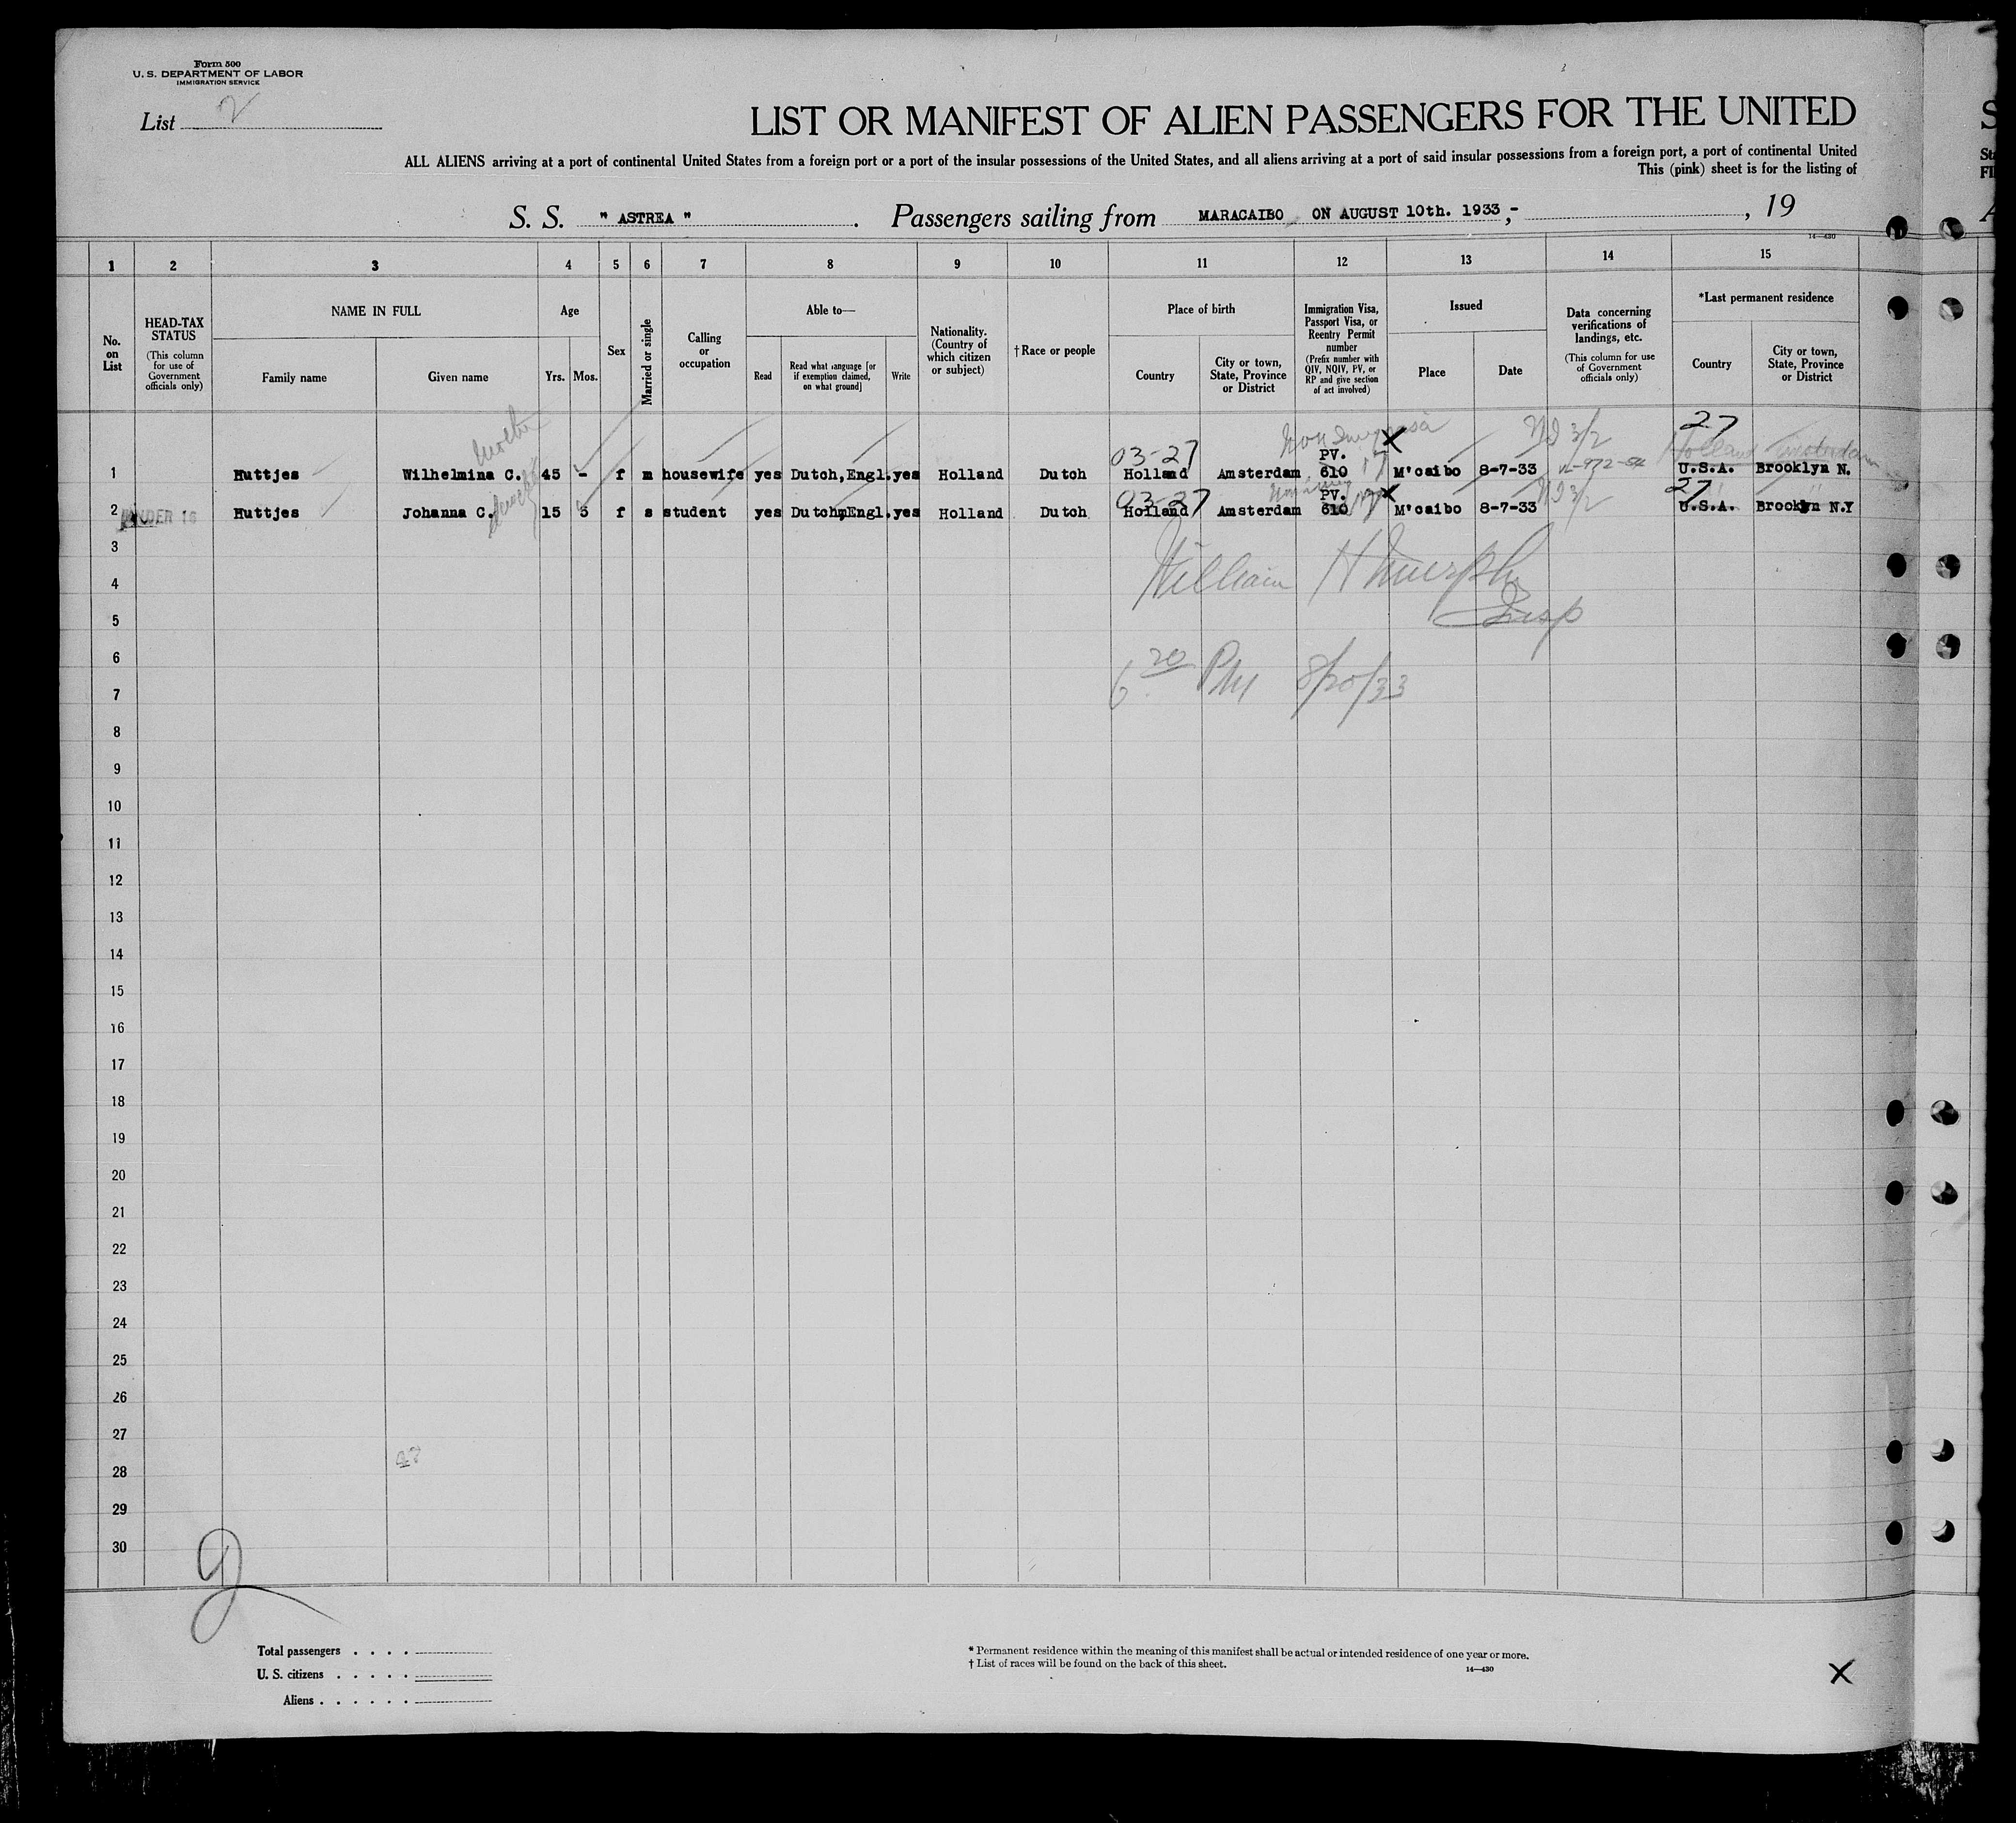 Form 500
U. S. DEPARTMENT OF LABOR
IMMIGRATION SERVICE
List 2
LIST OR MANIFEST OF ALIEN PASSENGERS FOR THE UNITED
ALL ALIENS arriving at a port of continental United States from a foreign port or a port of the insular possessions of the United States, and all aliens arriving at a port of said insular possessions from a foreign port, a port of continental United
This (pink) sheet is for the listing of
S. S. " ASTREA ". Passengers sailing from MARACAIBO ON AUGUST 10th. 1933,- , 19
14—430
1 2 3 4 5 6 7 8 9 10 11 12 13 14 15
No. on List
HEAD-TAX STATUS (This column for use of Government officials only)
NAME IN FULL
Family name
Given name
Age
Yrs.
Mos.
Sex
Married or single
Calling or occupation
Able to—
Read
Read what language [or if exemption claimed, on what ground]
Write
Nationality. (Country of which citizen or subject)
†Race or people
Place of birth
Country
City or town, State, Province or District
Immigration Visa, Passport Visa, or Reentry Permit number (Prefix number with QIV, NQIV, PV, or RP and give section of act involved)
Issued
Place
Date
Data concerning verifications of landings, etc. (This column for use of Government officials only)
*Last permanent residence
Country
City or town, State, Province or District
03-27 27
Holland Amsterdam
1 Huttjes Wilhelmina C. 45 - f m housewife yes Dutch,Engl. yes Holland Dutch Holland Amsterdam PV. 610 M'caibo 8-7-33 U.S.A. Brooklyn N.
03-27 27
2 UNDER 16 Huttjes Johanna C. 15 5 f s student yes Dutch,Engl. yes Holland Dutch Holland Amsterdam PV. 610 M'caibo 8-7-33 U.S.A. Brooklyn N.Y
3
4 William H Murphy
5 Insp
6
7 6 20 PM 8/20/33
8
9
10
11
12
13
14
15
16
17
18
19
20
21
22
23
24
25
26
27
28
29
30
Total passengers . . . .
U. S. citizens . . . . .
Aliens . . . . . .
* Permanent residence within the meaning of this manifest shall be actual or intended residence of one year or more.
† List of races will be found on the back of this sheet.
14—430
X